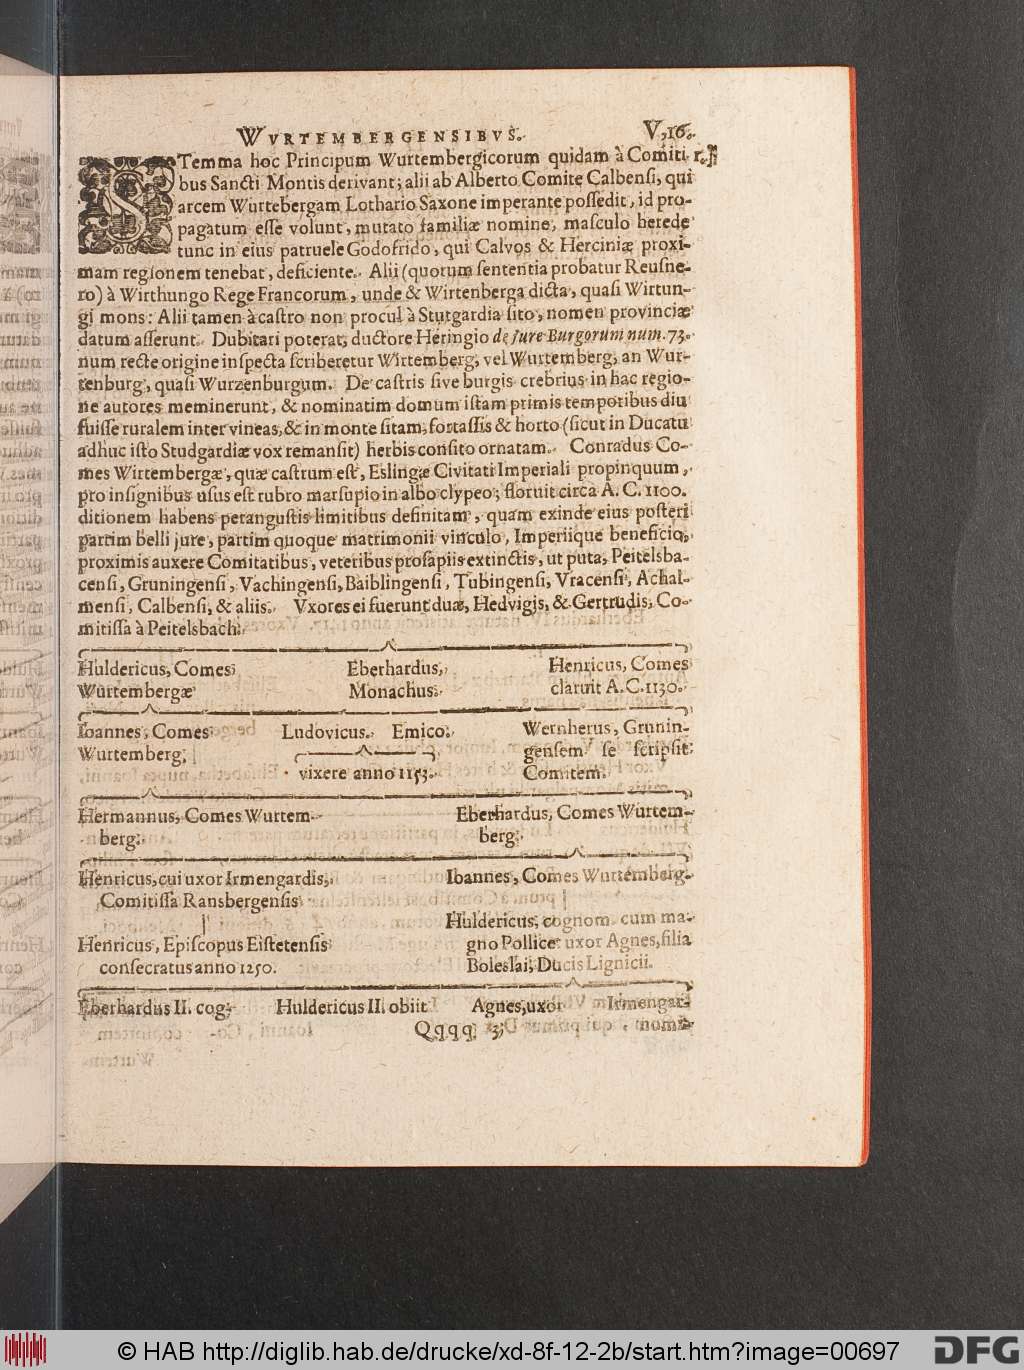 WVRTEMBERGENSIBVS. V, 16.
STemma hoc Principum Wurtembergicorum quidam à Comiti-
bus Sancti Montis derivant; alii ab Alberto Comite Calbensi, qui
arcem Wurtebergam Lothario Saxone imperante possedit, id pro-
pagatum esse volunt, mutato familiæ nomine, masculo herede
tunc in eius patruele Godofrido, qui Calvos & Herciniæ proxi-
mam regionem tenebat, deficiente. Alii (quorum sententia probatur Reusne-
ro) à Wirthungo Rege Francorum, unde & Wirtenberga dicta, quasi Wirtun-
gi mons: Alii tamen à castro non procul à Stutgardia sito, nomen provinciæ
datum asserunt. Dubitari poterat, ductore Heringio de Jure Burgorum num. 73.
num recte origine inspecta scriberetur Wirtemberg, vel Wurtemberg, an Wur-
tenburg, quasi Wurzenburgum. De castris sive burgis crebrius in hac regio-
ne autores meminerunt, & nominatim domum istam primis temporibus diu
fuisse ruralem inter vineas, & in monte sitam, fortassis & horto (sicut in Ducatu
adhuc isto Studgardiæ vox remansit) herbis consito ornatam. Conradus Co-
mes Wirtembergæ, quæ castrum est, Eslingæ Civitati Imperiali propinquum,
pro insignibus usus est rubro marsupio in albo clypeo; floruit circa A. C. 1100.
ditionem habens perangustis limitibus definitam, quam exinde eius posteri
partim belli jure, partim quoque matrimonii vinculo, Imperiique beneficio,
proximis auxere Comitatibus, veteribus prosapiis extinctis, ut puta, Peitelsba-
censi, Gruningensi, Vachingensi, Baiblingensi, Tubingensi, Vracensi, Achal-
mensi, Calbensi, & aliis. Vxores ei fuerunt duæ, Hedvigis, & Gertrudis, Co-
mitissa à Peitelsbach.
Huldericus, Comes Eberhardus, Henricus, Comes
Wurtembergæ Monachus. claruit A. C. 1130.
Ioannes, Comes Ludovicus. Emico. Wernherus, Grunin-
Wurtemberg, gensem se scripsit
vixere anno 1153. Comitem.
Hermannus, Comes Wurtem- Eberhardus, Comes Wurtem-
berg. berg.
Henricus, cui uxor Irmengardis, Ioannes, Comes Wurtemberg.
Comitissa Ransbergensis
Huldericus, cognom. cum ma-
Henricus, Episcopus Eistetensis gno Pollice: uxor Agnes, filia
consecratus anno 1250. Boleslai, Ducis Lignicii.
Eberhardus II. cog- Huldericus II. obiit Agnes, uxor Irmengar-
Qqqq 3 nomi-
© HAB http://diglib.hab.de/drucke/xd-8f-12-2b/start.htm?image=00697 DFG